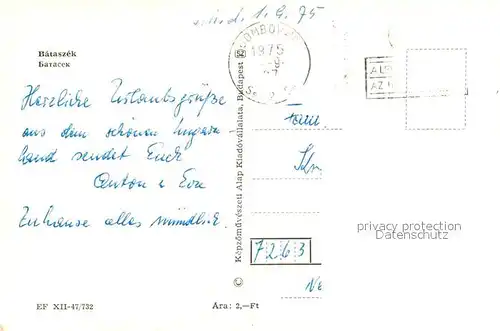 1. 9. 75
Bátaszék
Батасек
OMBOV
1975
Herzliche Urlaubsgrüße
aus dem schönen Ungarn-
land sendet Euch
Anton u. Eva
Zuhause alles mündlich.
Képzőművészeti Alap Kiadóvállalata, Budapest
7263
privacy protection
Datenschutz
EF XII-47/732
Ára: 2,—Ft